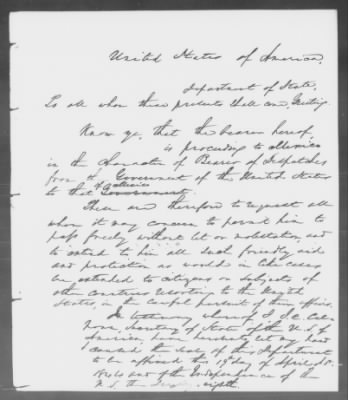 United States of America.
Department of State,
To all whom these presents shall come, Greeting.
Know ye, that the bearer hereof,
is proceeding to Mexico
in the Character of Bearer of Despatches
from the Government of the United States
of Mexico
to that Government.
These are therefore to request all
whom it may concern to permit him to
pass freely without let or molestation, and
to extend to him all such friendly aid
and protection as would in like cases
be extended to citizens or subjects of
other countries resorting to the United
States, in the lawful pursuit of their affairs.
In testimony whereof I J. C. Cal-
houn, Secretary of State of the U.S. of
America, have hereunto set my hand
caused the seal of this Department
to be affixed this 19th day of April A.D.
and of the Independence of the
U.S. the eighth.